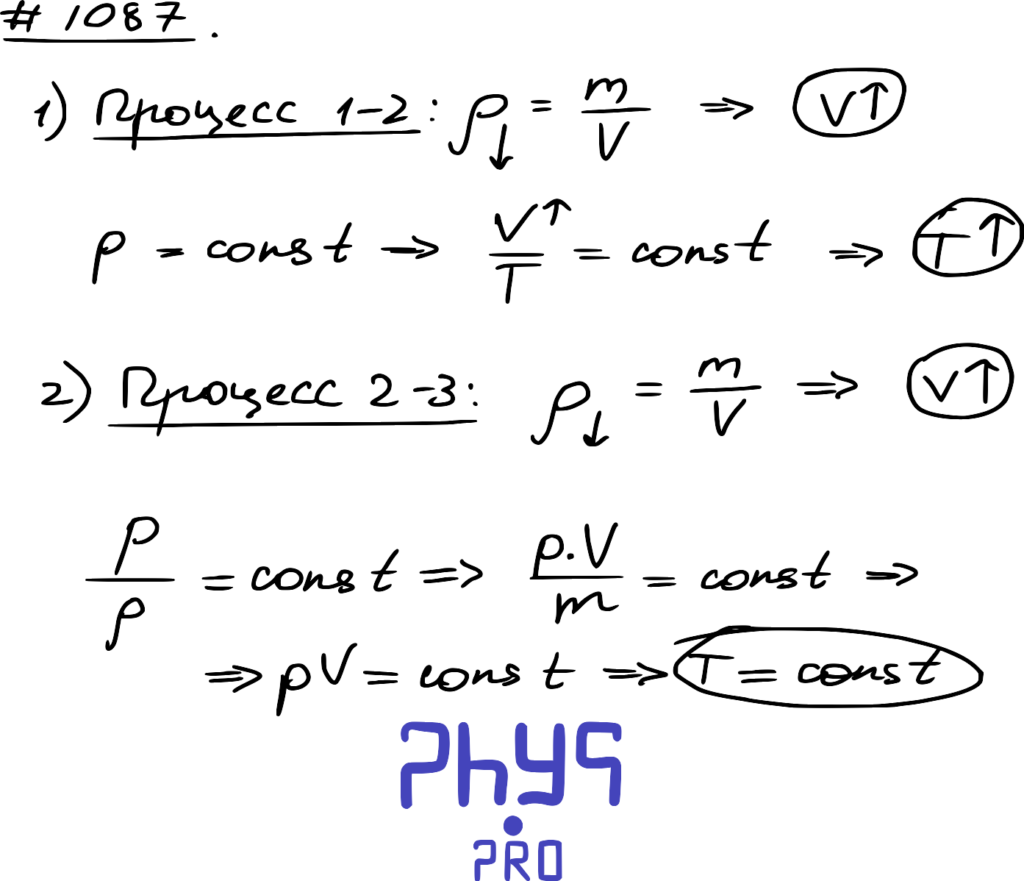 # 1087.
1) Процесс 1-2: ρ↓ = m/V => V↑
p = const => V↑/T = const => T↑
2) Процесс 2-3: ρ↓ = m/V => V↑
p/ρ = const => p·V/m = const =>
=> pV = const => T = const
PhyS
PRO